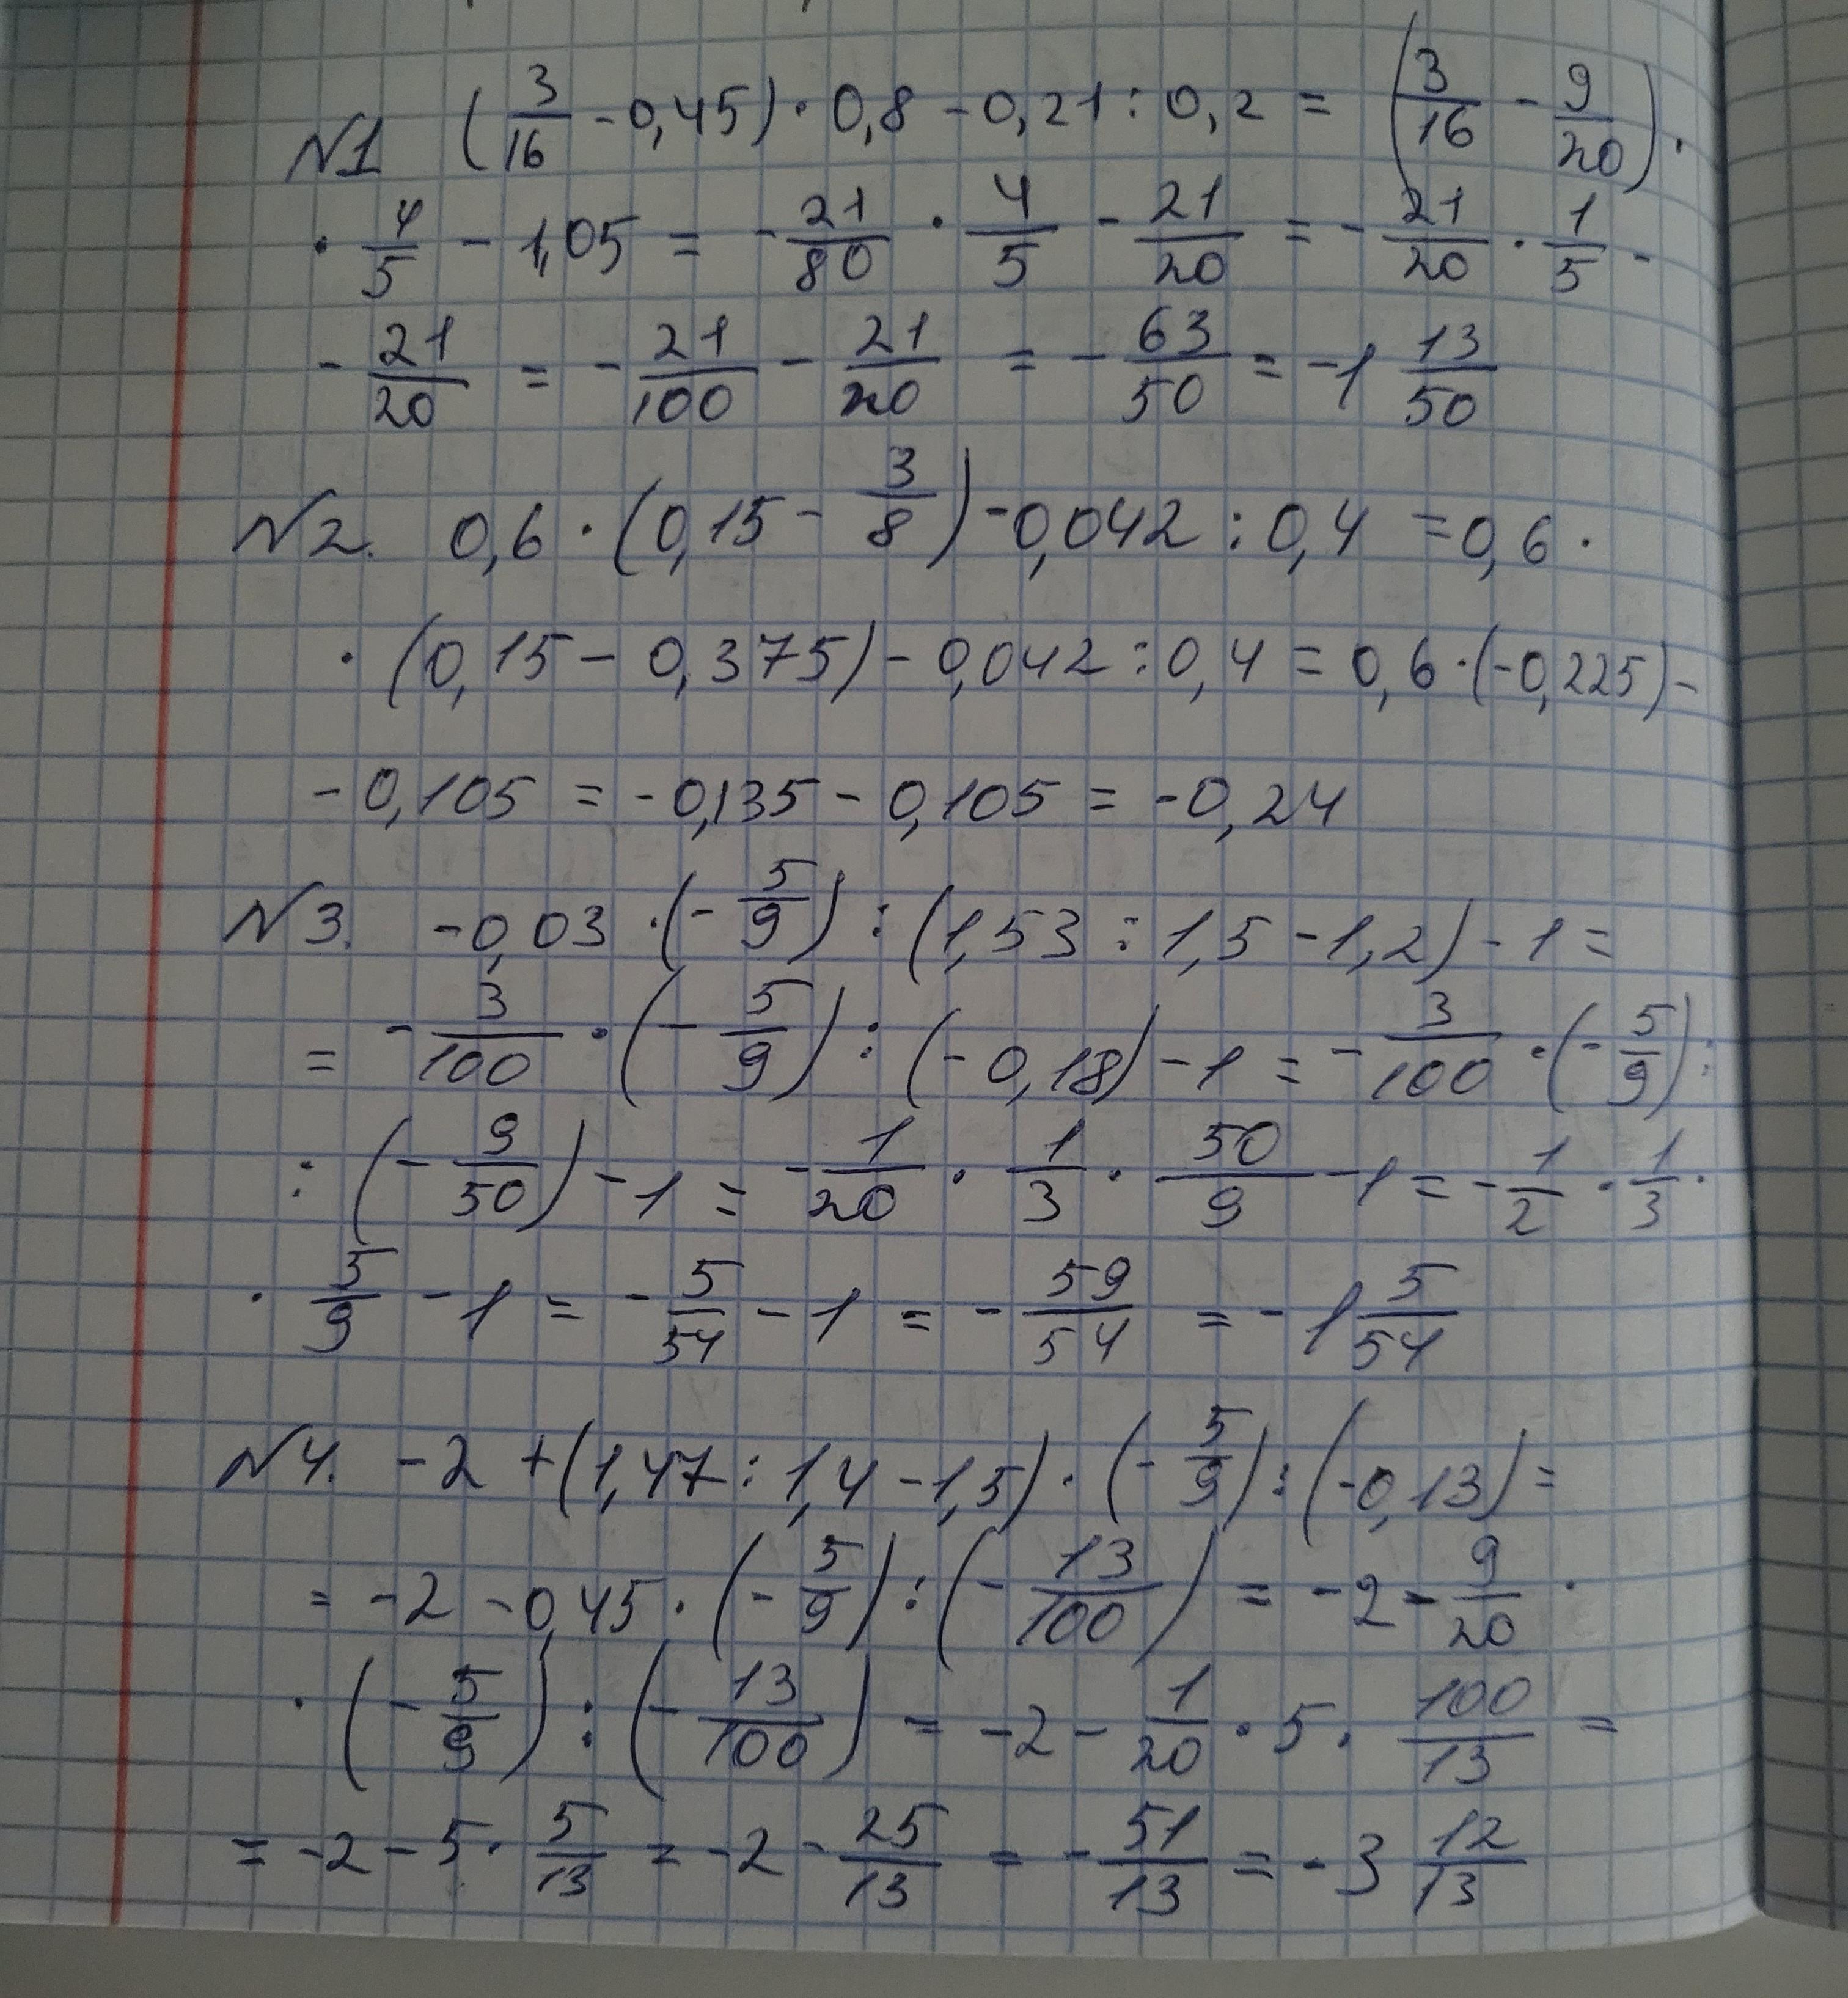 №1 (3/16 - 0,45) · 0,8 - 0,21 : 0,2 = (3/16 - 9/20) ·
· 4/5 - 1,05 = - 21/80 · 4/5 - 21/20 = - 21/20 · 1/5 -
- 21/20 = - 21/100 - 21/20 = - 63/50 = -1 13/50
№2. 0,6 · (0,15 - 3/8) - 0,042 : 0,4 = 0,6 ·
· (0,15 - 0,375) - 0,042 : 0,4 = 0,6 · (-0,225) -
- 0,105 = - 0,135 - 0,105 = -0,24
№3. -0,03 · (- 5/9) : (1,53 : 1,5 - 1,2) - 1 =
= - 3/100 · (- 5/9) : (-0,18) - 1 = - 3/100 · (- 5/9) :
: (- 9/50) - 1 = - 1/20 · 1/3 · 50/9 - 1 = - 1/2 · 1/3 ·
· 5/9 - 1 = - 5/54 - 1 = - 59/54 = - 1 5/54
№4. -2 + (1,47 : 1,4 - 1,5) · (- 5/9) : (-0,13) =
= -2 - 0,45 · (- 5/9) : (- 13/100) = -2 - 9/20 ·
· (- 5/9) : (- 13/100) = -2 - 1/20 · 5 · 100/13 =
= -2 - 5 · 5/13 = -2 - 25/13 = - 51/13 = -3 12/13